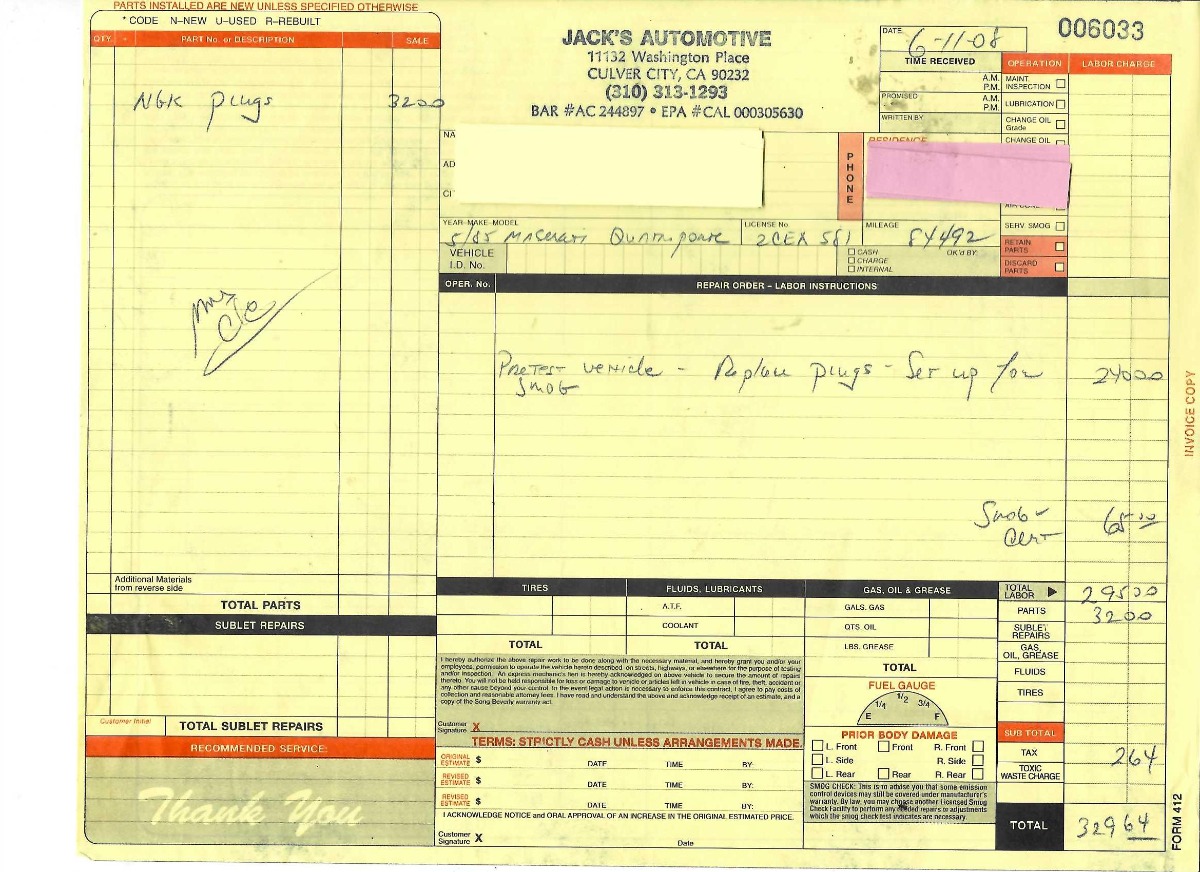 PARTS INSTALLED ARE NEW UNLESS SPECIFIED OTHERWISE
* CODE N–NEW U–USED R–REBUILT
QTY. * PART No. or DESCRIPTION SALE
NGK plugs 3200
Additional Materials
from reverse side
TOTAL PARTS
SUBLET REPAIRS
Customer Initial
TOTAL SUBLET REPAIRS
RECOMMENDED SERVICE:
Thank You
JACK'S AUTOMOTIVE
11132 Washington Place
CULVER CITY, CA 90232
(310) 313-1293
BAR #AC 244897 • EPA #CAL 000305630
DATE 6-11-08
006033
TIME RECEIVED
A.M.
P.M.
PROMISED A.M.
P.M.
WRITTEN BY
OPERATION LABOR CHARGE
MAINT. INSPECTION
LUBRICATION
CHANGE OIL Grade
CHANGE OIL
SERV. SMOG
RETAIN PARTS
DISCARD PARTS
NA
AD
CI
PHONE
RESIDENCE
YEAR-MAKE-MODEL LICENSE No. MILEAGE
5/85 Maserati Quattroporte 2CEX 581 84492
VEHICLE
I.D. No.
CASH
CHARGE
INTERNAL
OK'd BY
OPER. No. REPAIR ORDER – LABOR INSTRUCTIONS
Pretest vehicle - Replace plugs - Set up for 24000
Smog
Smog - 65.00
Cert
TIRES FLUIDS, LUBRICANTS GAS, OIL & GREASE
A.T.F. GALS. GAS
COOLANT QTS. OIL
LBS. GREASE
TOTAL TOTAL
TOTAL
TOTAL LABOR 29500
PARTS 3200
SUBLET REPAIRS
GAS, OIL, GREASE
FLUIDS
TIRES
SUB TOTAL
TAX 264
TOXIC WASTE CHARGE
TOTAL 32964
I hereby authorize the above repair work to be done along with the necessary material, and hereby grant you and/or your
employees, permission to operate the vehicle herein described on streets, highways, or elsewhere for the purpose of testing
and/or inspection. An express mechanics lien is hereby acknowledged on above vehicle to secure the amount of repairs
thereto. You will not be held responsible for loss or damage to vehicle or articles left in vehicle in case of fire, theft, accident or
any other cause beyond your control. In the event legal action is necessary to enforce this contract, I agree to pay costs of
collection and reasonable attorney fees. I have read and understand the above and acknowledge receipt of an estimate, and a
copy of the Song Beverly warranty act.
Customer
Signature X
TERMS: STRICTLY CASH UNLESS ARRANGEMENTS MADE.
ORIGINAL ESTIMATE $ DATE TIME BY:
REVISED ESTIMATE $ DATE TIME BY:
REVISED ESTIMATE $ DATE TIME BY:
I ACKNOWLEDGE NOTICE and ORAL APPROVAL OF AN INCREASE IN THE ORIGINAL ESTIMATED PRICE.
Customer
Signature X Date
FUEL GAUGE
E 1/4 1/2 3/4 F
PRIOR BODY DAMAGE
L. Front Front R. Front
L. Side R. Side
L. Rear Rear R. Rear
SMOG CHECK: This is to advise you that some emission
control devices may still be covered under manufacturer's
warranty. By law, you may choose another Licensed Smog
Check Facility to perform any needed repairs or adjustments
which the smog check test indicates are necessary.
INVOICE COPY
FORM 412